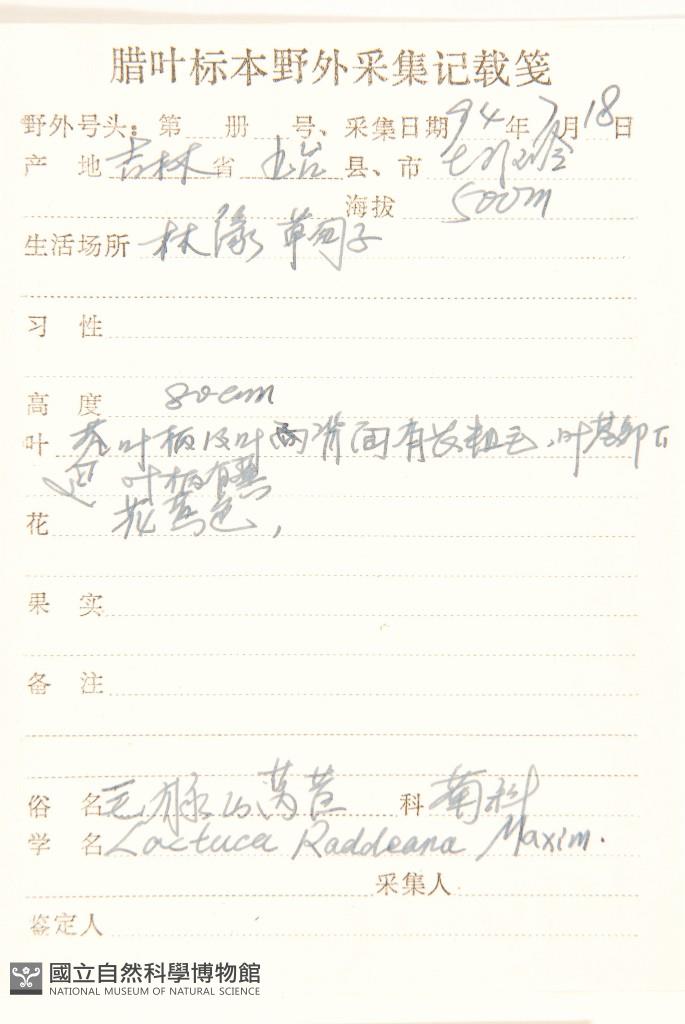 腊叶标本野外采集记载笺
野外号头：第 册 号、采集日期 94年7月18日
产 地 吉林 省 县、市
海拔 500m
生活场所 林缘草甸子
习 性
高 度 80cm
叶 茎叶柄及叶两背面有长粗毛，叶基部下
延 叶柄有翼
花 花黄色，
果 实
备 注
俗 名 毛脉山莴苣 科 菊科
学 名 Lactuca Raddeana Maxim.
采集人
鉴定人
國立自然科學博物館
NATIONAL MUSEUM OF NATURAL SCIENCE